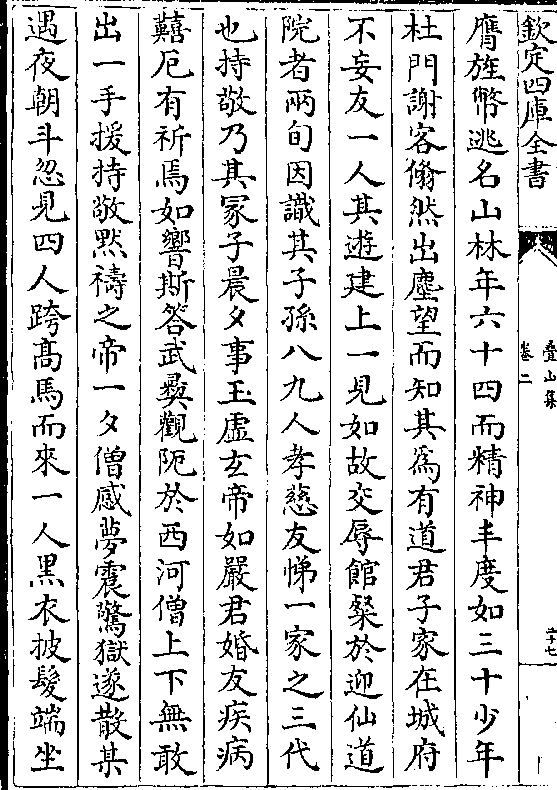 欽定四庫全書
疊山集
卷二
二十七
膺旌幣逃名山林年六十四而精神丰度如三十少年
杜門謝客翛然出塵望而知其為有道君子家在城府
不妄友一人某遊建上一見如故交辱館粲於迎仙道
院者兩旬因識其子孫八九人孝慈友悌一家之三代
也持敬乃其冢子晨夕事玉虛玄帝如嚴君婚友疾病
囏厄有祈焉如響斯答武彛觀阨於西河僧上下無敢
出一手援持敬黙禱之帝一夕僧感夢震驚獄遂散某
遇夜朝斗忽見四人跨髙馬而來一人黑衣披髮端坐